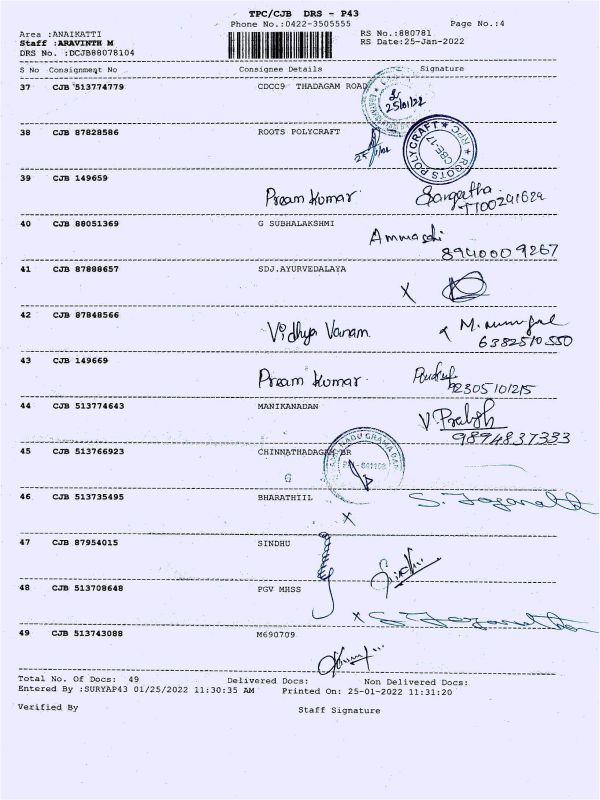 TPC/CJB DRS - P43
Phone No.:0422-3505555 Page No.:4
Area :ANAIKATTI RS No.:880781
Staff :ARAVINTH M RS Date:25-Jan-2022
DRS No. :DCJB88078104
S No Consignment No Consignee Details Signature
37 CJB 513774779 CDCC9 THADAGAM ROAD
25/01/22
38 CJB 87828586 ROOTS POLYCRAFT
ROOTS POLYCRAFT ★ RPC ★ CBE-17
39 CJB 149659
Pream Kumar Sangeetha
40 CJB 88051369 G SUBHALAKSHMI
8940009267
41 CJB 87888657 SDJ.AYURVEDALAYA
X
42 CJB 87848566
Vidhya Vanam
6382510550
43 CJB 149669
Pream Kumar
92305101215
44 CJB 513774643 MANIKANADAN
V Prabhh
9894837333
45 CJB 513766923 CHINNATHADAGAM BR
G
46 CJB 513735495 BHARATHIIL
X
47 CJB 87954015 SINDHU
Sindhu
48 CJB 513708648 PGV MHSS
X
49 CJB 513743088 M690709
Total No. Of Docs: 49 Delivered Docs: Non Delivered Docs:
Entered By :SURYAP43 01/25/2022 11:30:35 AM Printed On: 25-01-2022 11:31:20
Verified By Staff Signature